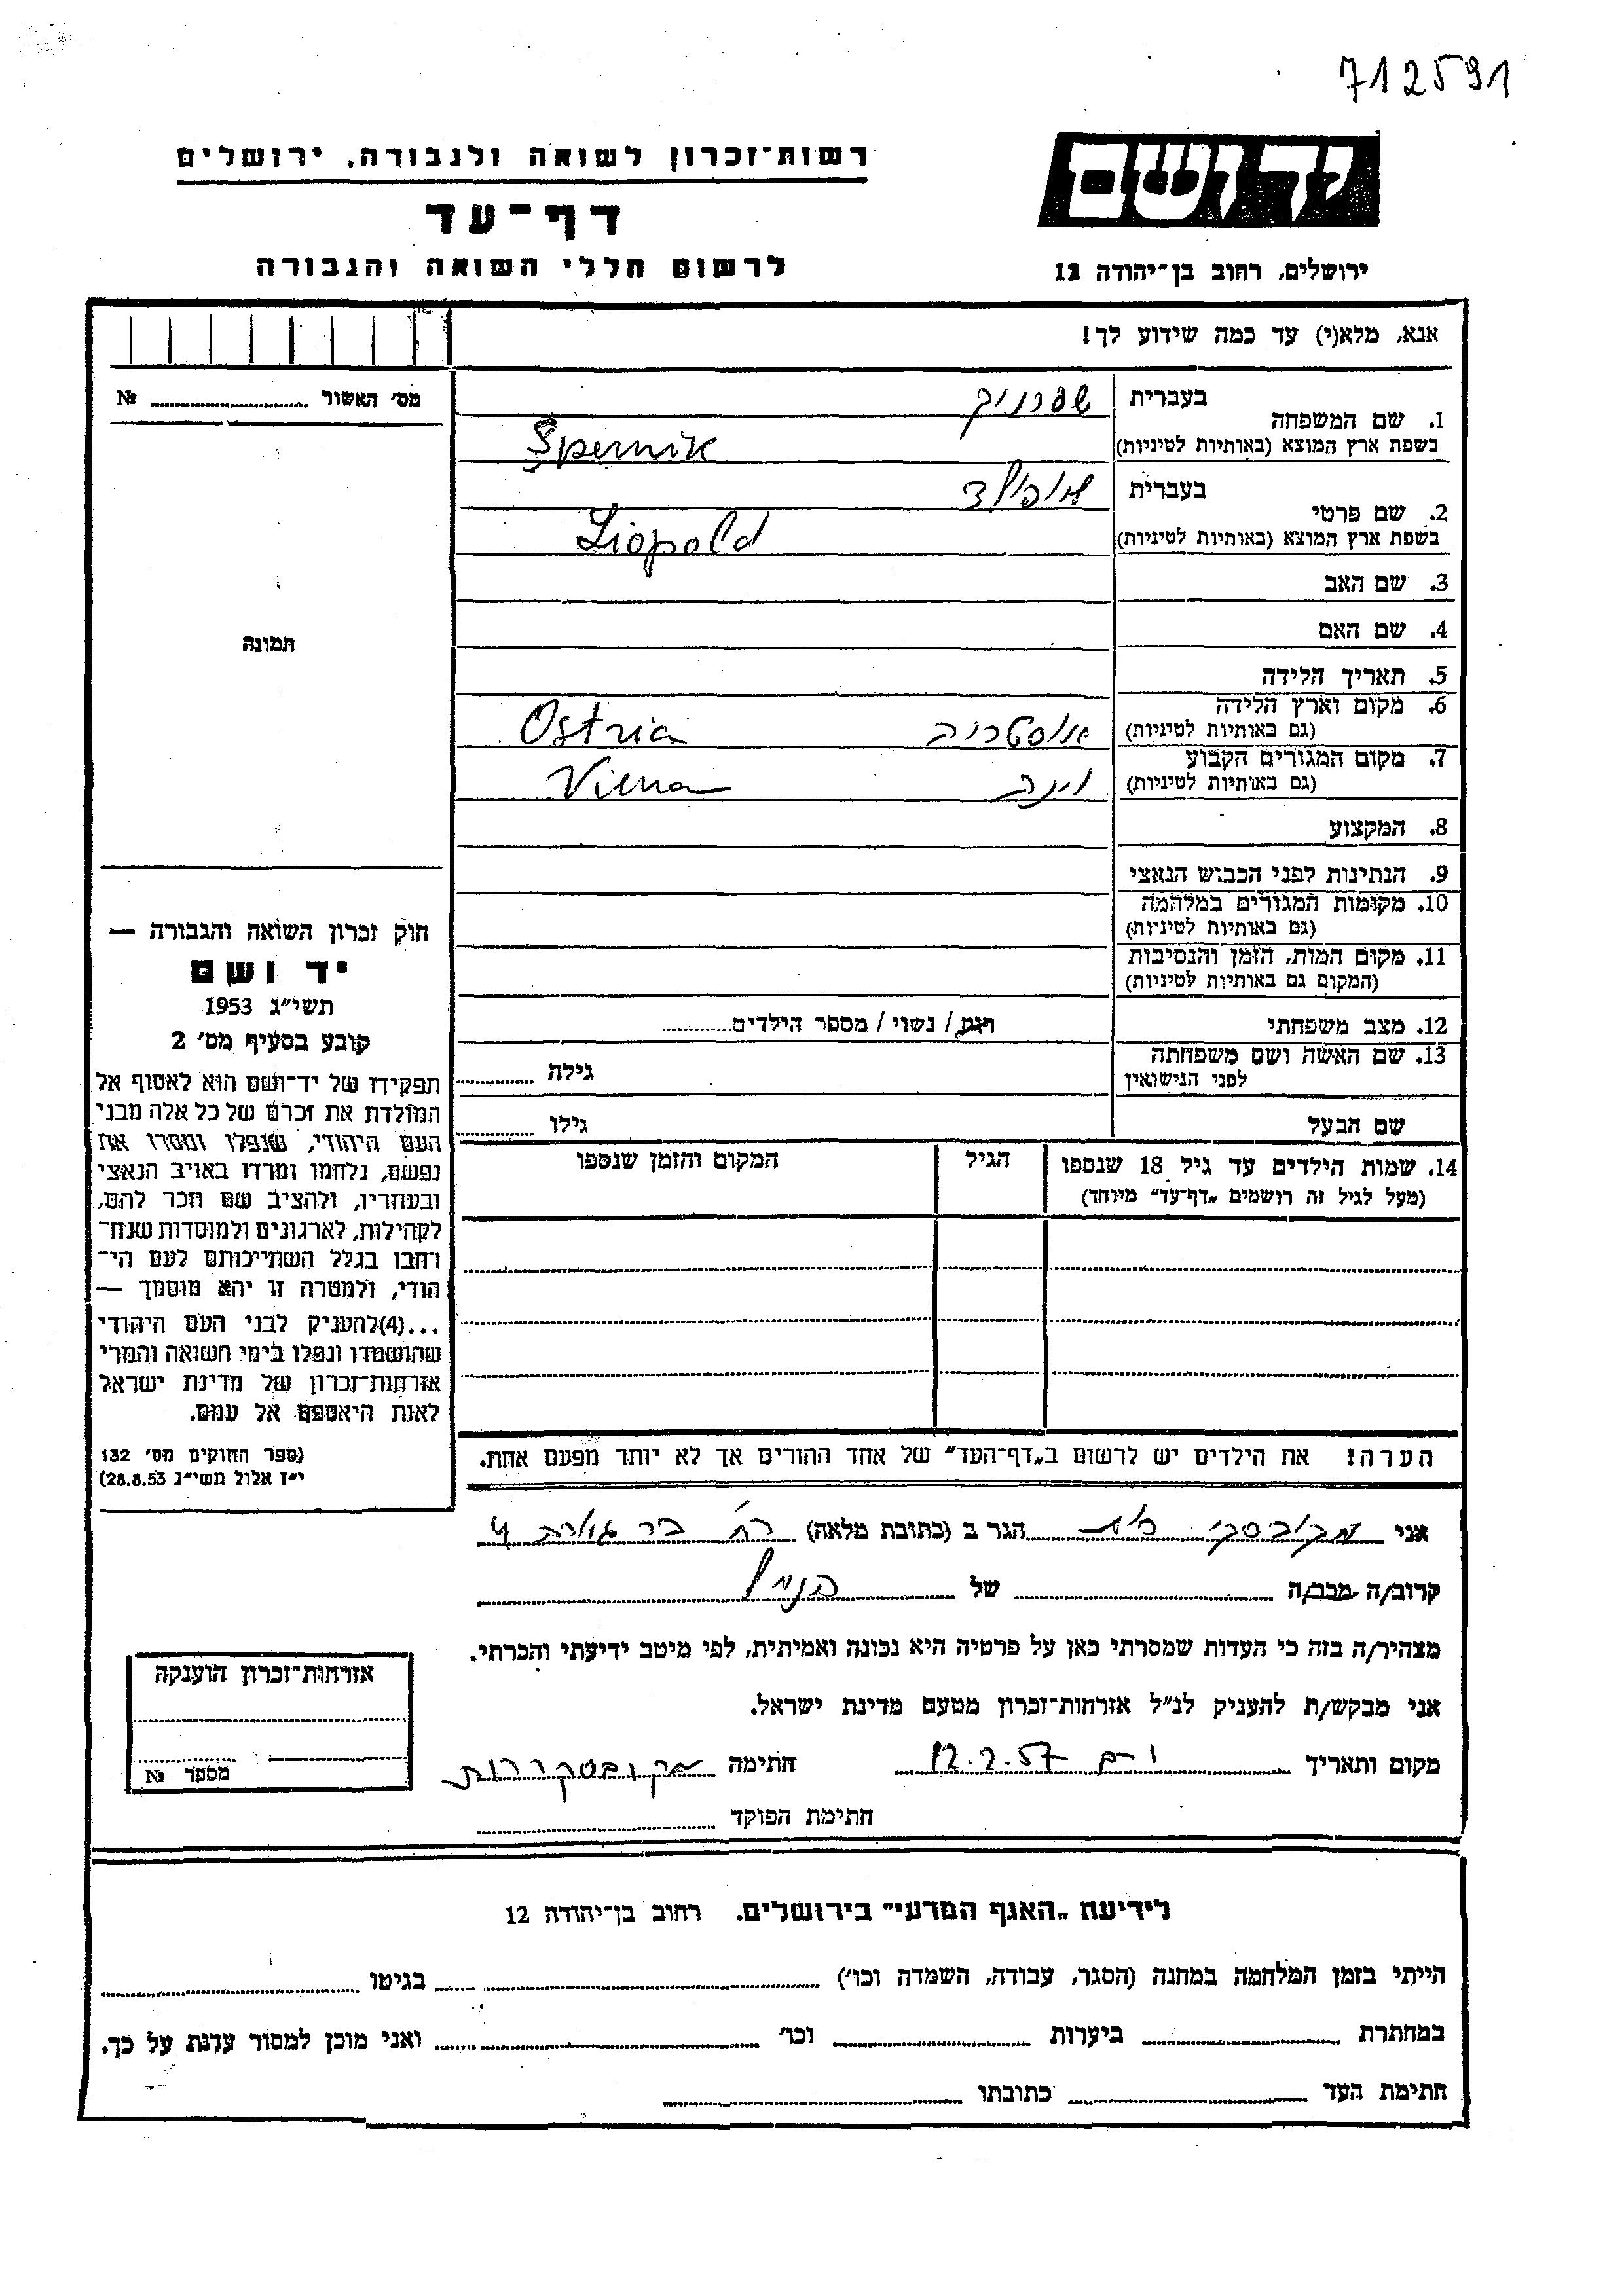 712591
יד ושם
רשות־זכרון לשואה ולגבורה, ירושלים
דף־עד
לרשום חללי השואה והגבורה
ירושלים, רחוב בן־יהודה 12
אנא, מלא(י) עד כמה שידוע לך!
מס׳ האשור ........ №
תמונה
1. שם המשפחה
בעברית שפרניק
בשפת ארץ המוצא (באותיות לטיניות) Spernik
2. שם פרטי
בעברית
בשפת ארץ המוצא (באותיות לטיניות) Liopold
3. שם האב
4. שם האם
5. תאריך הלידה
6. מקום וארץ הלידה
(גם באותיות לטיניות) אוסטריה Ostria
7. מקום המגורים הקבוע
(גם באותיות לטיניות) וינה Viena
8. המקצוע
9. הנתינות לפני הכבוש הנאצי
10. מקומות המגורים במלחמה
(גם באותיות לטיניות)
11. מקום המות, הזמן והנסיבות
(המקום גם באותיות לטיניות)
12. מצב משפחתי רווק / נשוי / מספר הילדים........
13. שם האשה ושם משפחתה
לפני הנישואין גילה ........
שם הבעל גילו ........
14. שמות הילדים עד גיל 18 שנספו הגיל המקום והזמן שנספו
(מעל לגיל זה רושמים „דף־עד״ מיוחד)
חוק זכרון השואה והגבורה —
יד ושם
תשי״ג 1953
קובע בסעיף מס׳ 2
תפקידו של יד־ושם הוא לאסוף אל
המולדת את זכרם של כל אלה מבני
העם היהודי, שנפלו ומסרו את
נפשם, נלחמו ומרדו באויב הנאצי
ובעוזריו, ולהציב שם וזכר להם,
לקהילות, לארגונים ולמוסדות שנח־
רבו בגלל השתייכותם לעם הי־
הודי, ולמטרה זו יהא מוסמך —
...(4)להעניק לבני העם היהודי
שהושמדו ונפלו בימי השואה והמרי
אזרחות־זכרון של מדינת ישראל
לאות היאספם אל עמם.
(ספר החוקים מס׳ 132
י״ז אלול תשי״ג 28.8.53)
הערה! את הילדים יש לרשום ב„דף־העד״ של אחד ההורים אך לא יותר מפעם אחת.
אני רות הגר ב (כתובת מלאה) רח׳ 4
קרוב/ה מכר/ה של הנ״ל
מצהיר/ה בזה כי העדות שמסרתי כאן על פרטיה היא נכונה ואמיתית, לפי מיטב ידיעתי והכרתי.
אני מבקש/ת להעניק לנ״ל אזרחות־זכרון מטעם מדינת ישראל.
מקום ותאריך 12.2.57 חתימה
חתימת הפוקד
אזרחות־זכרון הוענקה
מספר №
לידיעת „האגף המדעי״ בירושלים. רחוב בן־יהודה 12
הייתי בזמן המלחמה במחנה (הסגר, עבודה, השמדה וכו׳) ........ בגיטו ........
במחתרת ........ ביערות ........ וכו׳ ........ ואני מוכן למסור עדות על כך.
חתימת העד ........ כתובתו ........